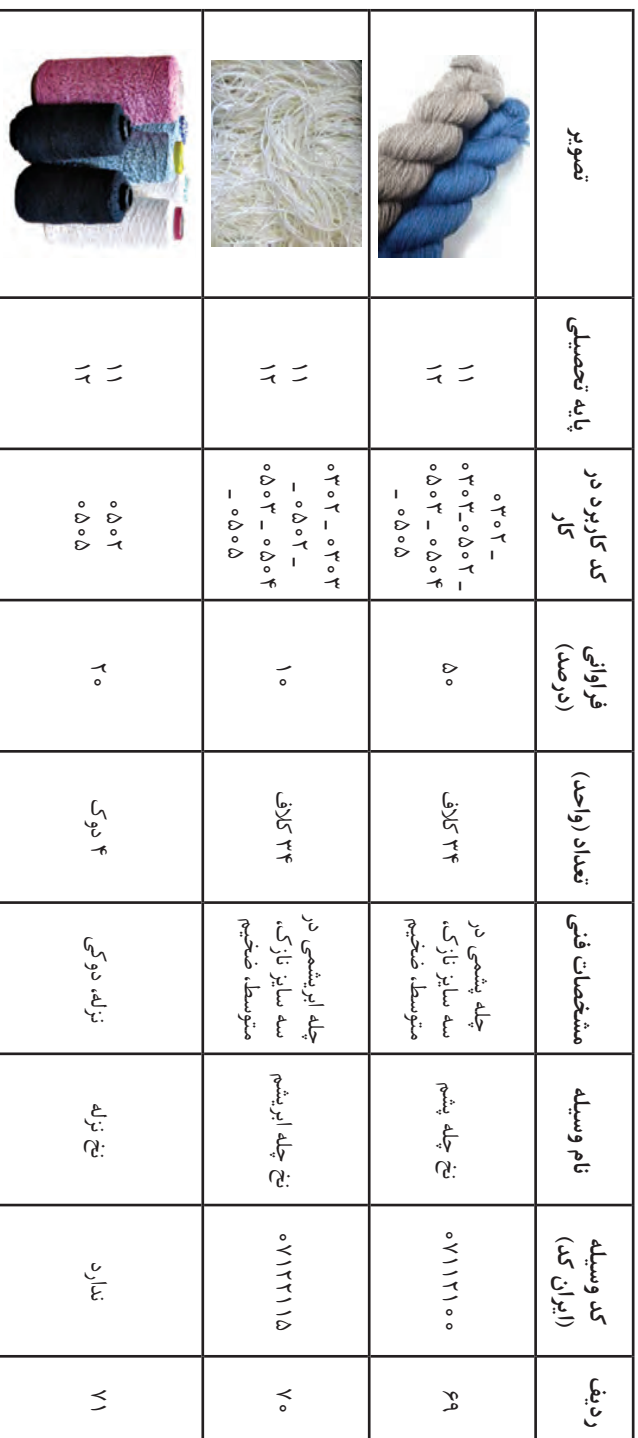 ردیف
کد وسیله
(ایران کد)
نام وسیله
مشخصات فنی
تعداد (واحد)
فراوانی
(درصد)
کد کاربرد در
کار
پایه تحصیلی
تصویر
۶۹
۰۷۱۱۲۱۰۰
نخ چله پشم
چله پشمی در
سه سایز نازک،
متوسط، ضخیم
۳۴ کلاف
۵۰
۰۳۰۲ ـ
۰۳۰۳ـ۰۵۰۲ ـ
۰۵۰۳ ـ ۰۵۰۴
ـ ۰۵۰۵
۱۱
۱۲
۷۰
۰۷۱۲۲۱۱۵
نخ چله ابریشم
چله ابریشمی در
سه سایز نازک،
متوسط، ضخیم
۳۴ کلاف
۱۰
۰۳۰۲ ـ ۰۳۰۳
ـ ۰۵۰۲ ـ
۰۵۰۳ ـ ۰۵۰۴
ـ ۰۵۰۵
۱۱
۱۲
۷۱
ندارد
نخ نزله
نزله، دوکی
۴ دوک
۲۰
۰۵۰۲
۰۵۰۵
۱۱
۱۲